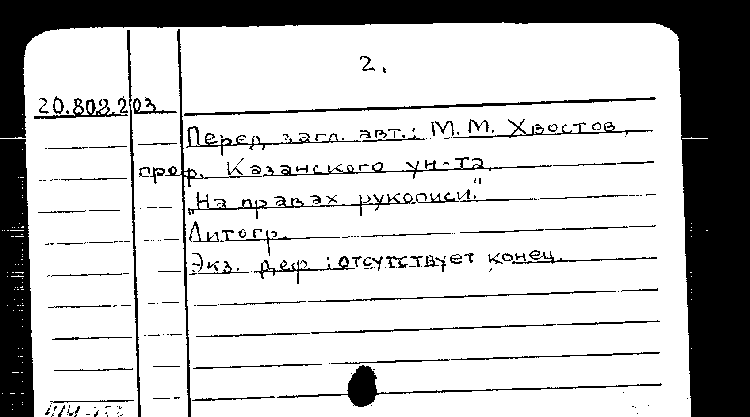 2.
20.808.203
Перед загл. авт.: М.М. Хвостов,
проф. Казанского ун-та.
„На правах рукописи."
Литогр.
Экз. деф.: отсутствует конец.